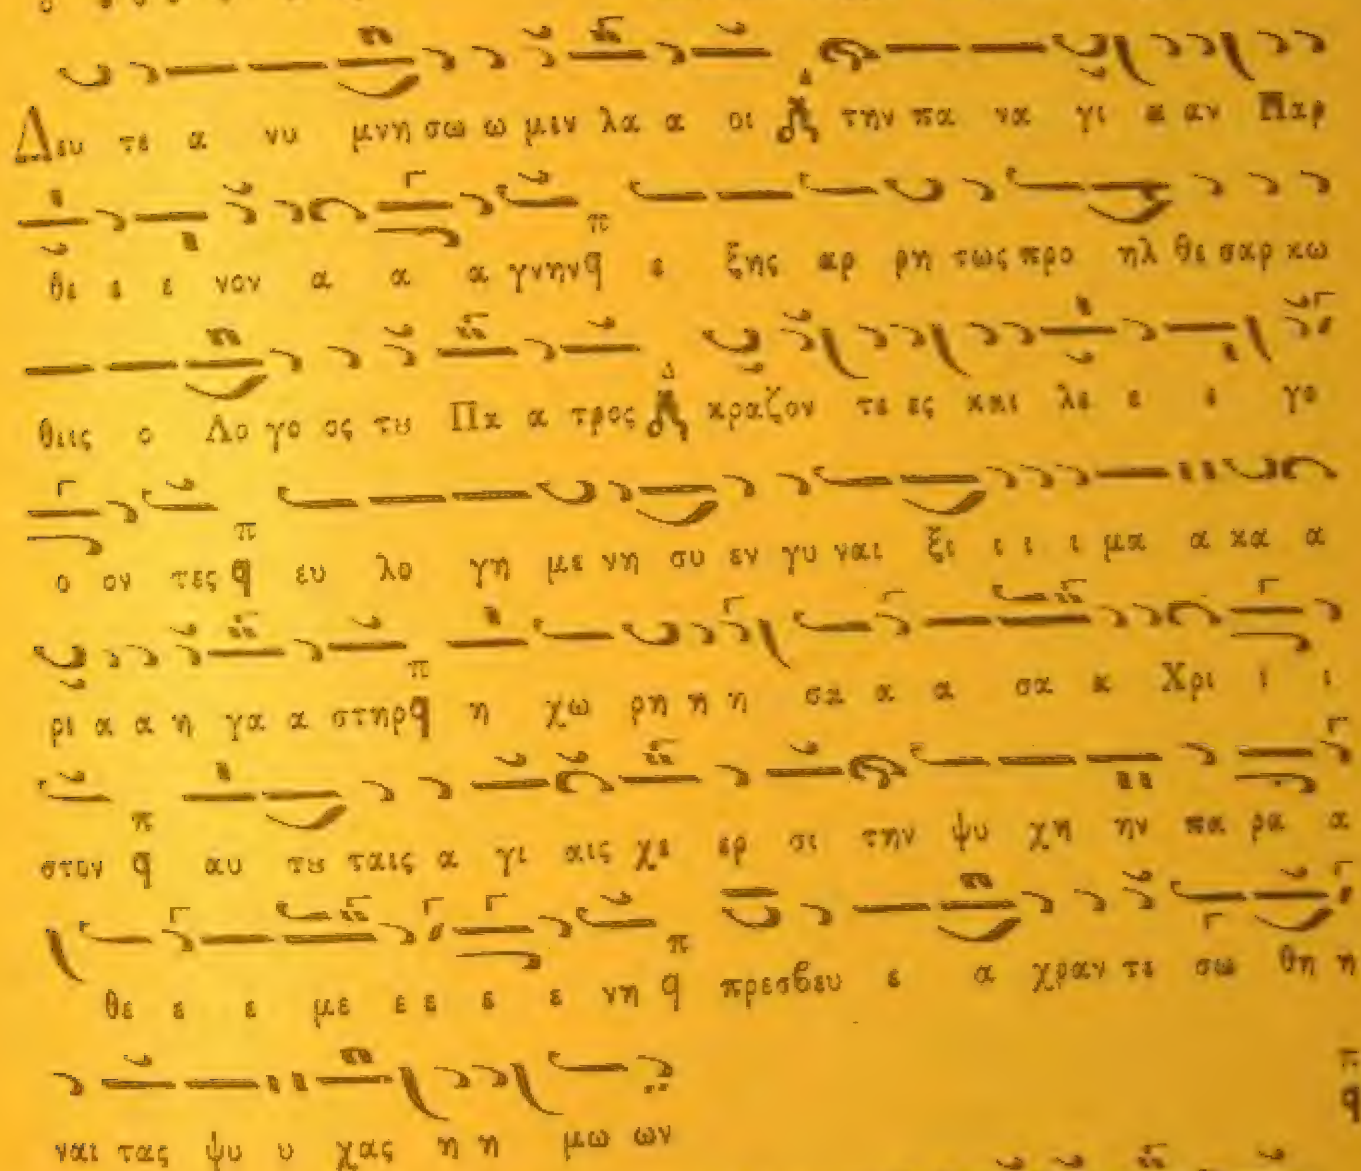 Δευ τε α νυ μνη σω ω μεν λα α οι Δ την πα να γι α αν Παρ
θε ε ε νον α α α γνην π q ε ξης αρ ρη τως προ ηλ θε σαρ κω
θεις ο Λο γο ος τȣ Πα α τρος Δ κραζον τε ες και λε ε ε γο
ο ον τες π q ευ λο γη με νη συ εν γυ ναι ξι ι ι ι μα α κα α
ρι α α η γα α στηρ π q η χω ρη η η σα α α σα α Χρι ι ι
στον π q αυ τȣ ταις α γι αις χε ερ σι την ψυ χη ην πα ρα α
θε ε ε με ε ε ε ε νη π q πρεσβευ ε α χραν τε σω θη η
ναι τας ψυ υ χας η η μω ων π q